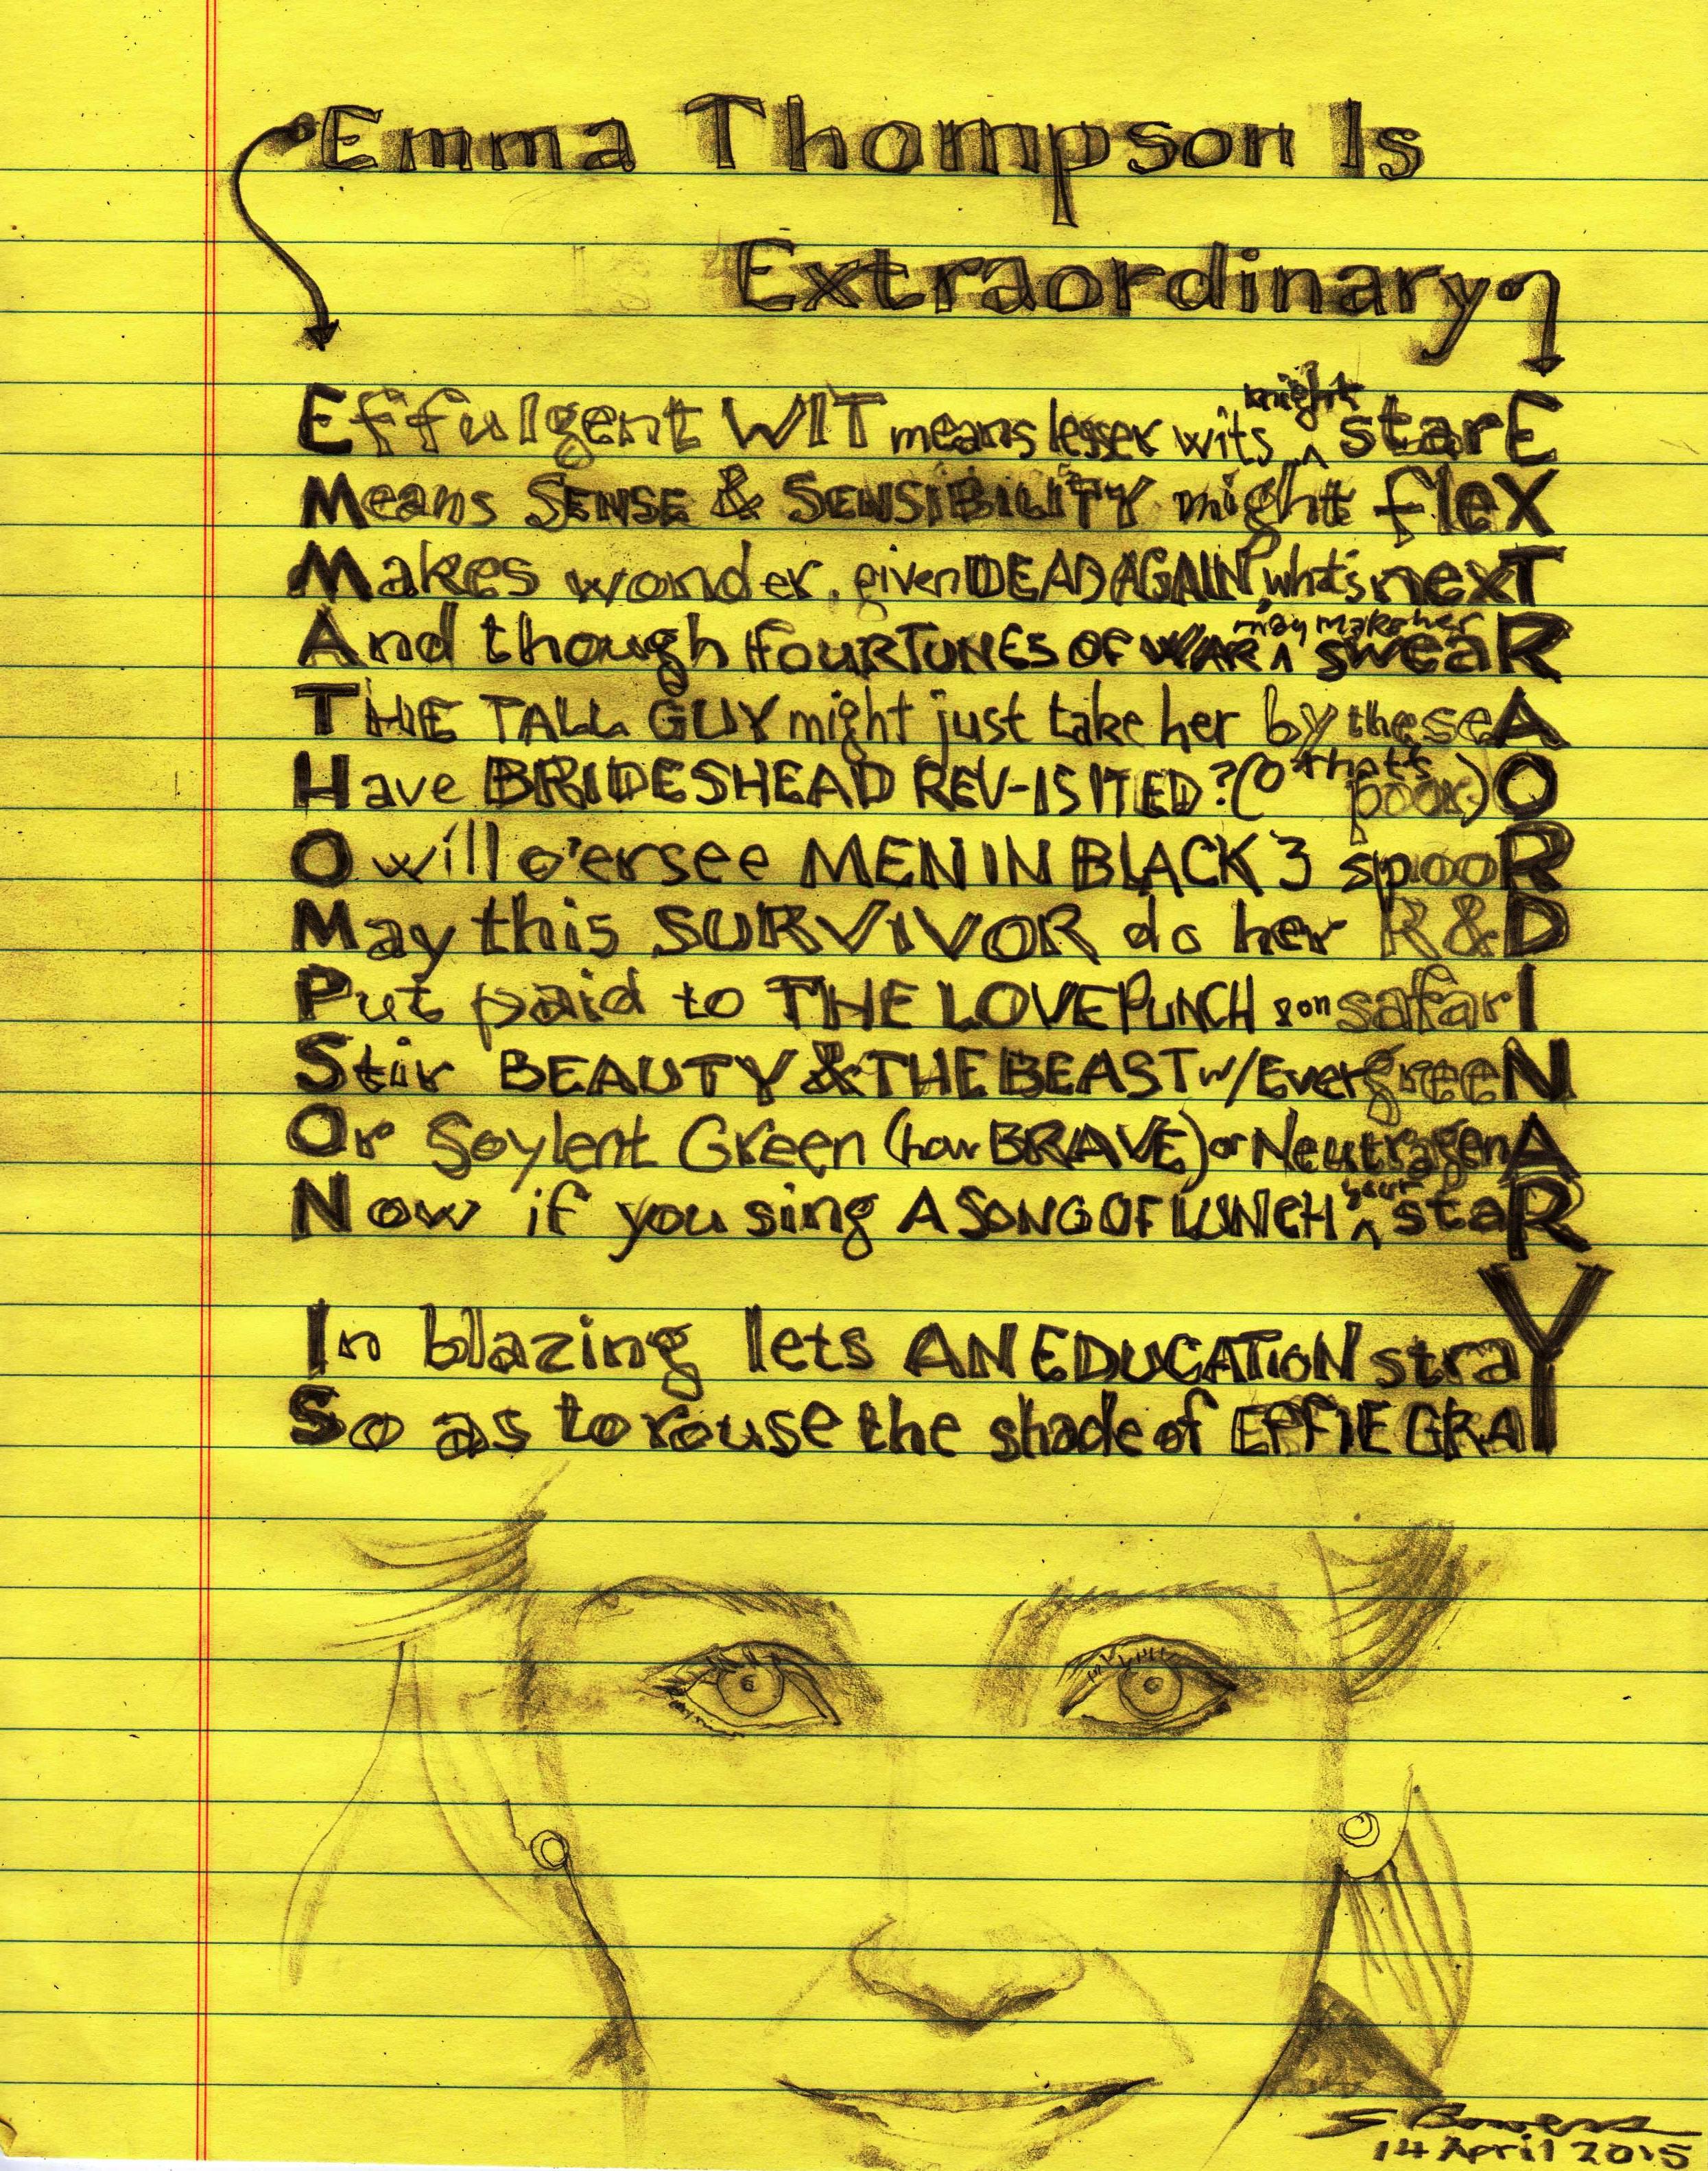 Emma Thompson Is
Extraordinary
Effulgent WIT means lesser wits might starE
Means SENSE & SENSIBILITY might fleX
Makes wonder, given DEAD AGAIN, what's nexT
And though FOURTUNES OF WAR may make her sweaR
THE TALL GUY might just take her by theseA
Have BRIDESHEAD REV-ISITED? (O that's poor.) O
O will o'ersee MEN IN BLACK 3 spooR
May this SURVIVOR do her R&D
Put paid to THE LOVE PUNCH & on safarI
Stir BEAUTY & THE BEAST w/ EvergreeN
Or Soylent Green (how BRAVE) or NeutragenA
Now if you sing A SONG OF LUNCH your staR
In blazing lets AN EDUCATION straY
So as to rouse the shade of EFFIE GRAY
S Bowers
14 April 2015